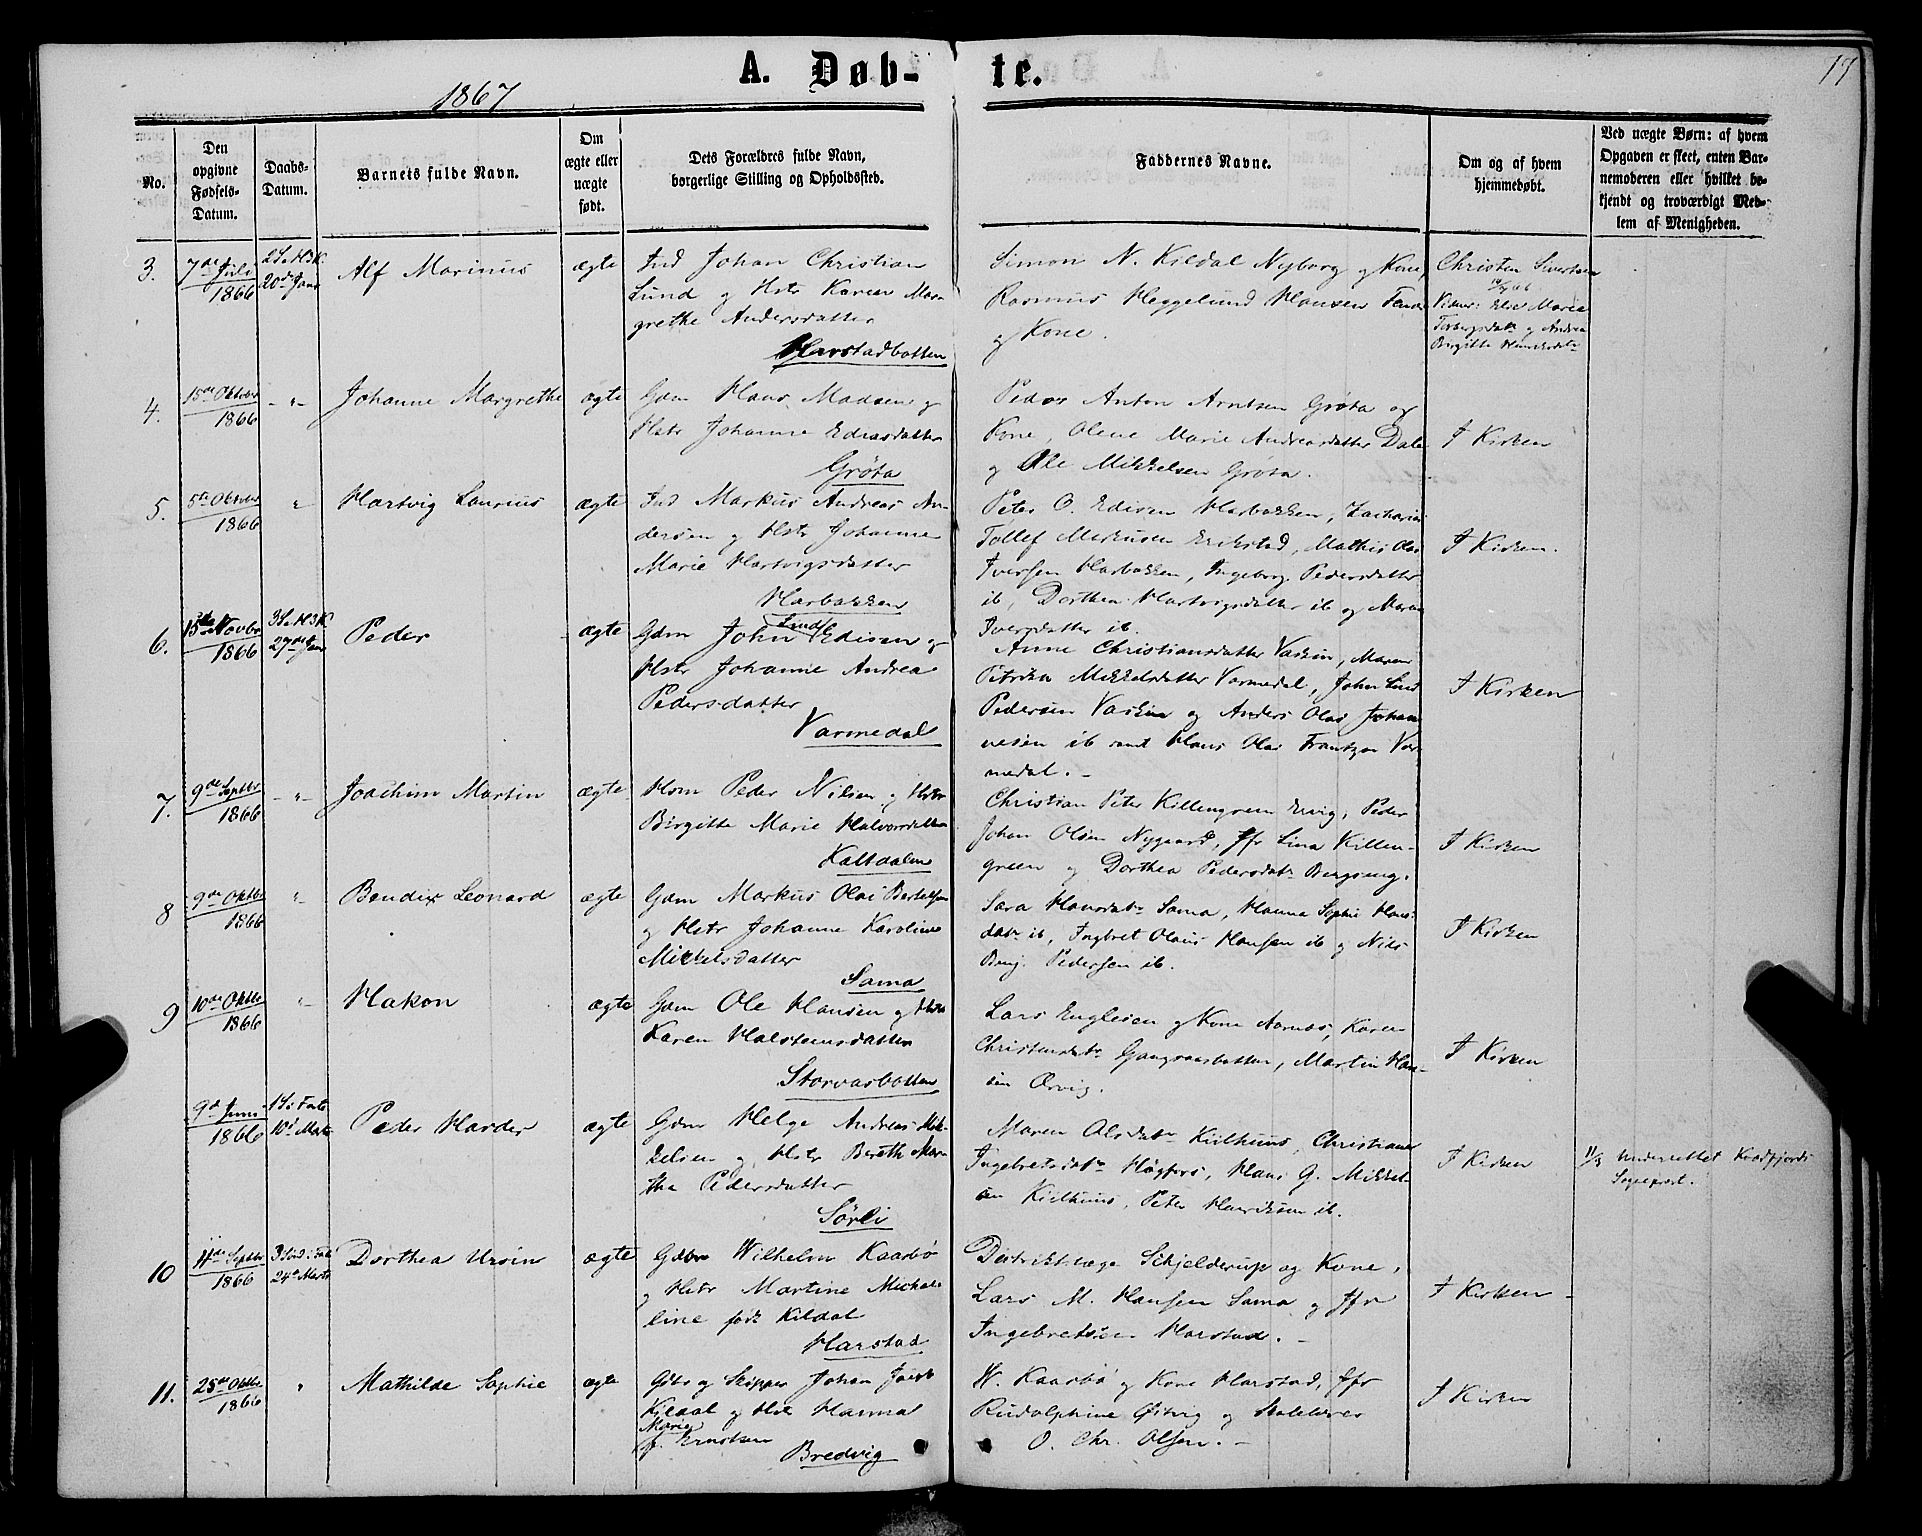 A. Døb- te.
17
1867
No.
Den opgivne Fødsels-Datum.
Daabs-Datum.
Barnets fulde Navn.
Om ægte eller uægte født.
Dets Forældres fulde Navn, borgerlige Stilling og Opholdssted.
Faddernes Navne.
Om og af hvem hjemmedøbt.
Ved uægte Børn: af hvem Opgaven er skeet, enten Barnemoderen eller hvilket bekjendt og troværdigt Medlem af Menigheden.
3. 7de Juli 1866 2 S. e. H3K. 20de Janr Alf Marinus ægte
Ind Johan Christian
Lund og Hstr Karen Mar-
grethe Andersdatter
Harstadbotten
Simon N. Kildal Nyborg og Kone,
Rasmus Heggelund Hansen
og Kone.
Christen Sivertsen
Vidner: Else Marie
Torbergsdatr og Andrea
Birgitte
4. 15de Oktbr 1866 - " - Johanne Margrethe ægte
Gdm Hans Madsen og
Hstr Johanne Edisdatter
Grøta
Peder Anton Arntsen Grøta og
Kone, Olene Marie Andreasdatter Dale
og Ole Mikkelsen Grøta.
I Kirken
5. 5te Oktbr 1866 " Hartvig Laurius ægte
Ind Markus Andreas An-
dersen og Hstr Johanne
Marie Hartvigsdatter
Harbakken
Peter O. Edisen Harbakken, Zacharias
Tollef Markusen Erikstad, Mathis Olai
Iversen Harbakken, Ingeborg Pedersdatter
ib, Dorthea Hartvigsdatter ib og Maren
Iversdatter ib.
I Kirken.
6. 15de Novbr 1866 3 S. e. H3K 27de Janr Peder ægte
Gdm John Lind Edisen og
Hstr Johanne Andrea
Pedersdatter
Varmedal
Anne Christiansdatter Vaskin, Maren
Petrikka Mikkelsdatter Varmedal, John Lind
Pedersen Vaskin og Anders Olai Johan-
nesen ib samt Hans Olai Frantzen Var-
medal. -
I Kirken
7. 9de Septbr 1866 - " - Joachim Martin ægte
Hsm Peder Nilsen og Hstr
Birgitte Marie Halvorsdatter
Kaltdalen
Christian Peter Killengreen Ervig, Peder
Johan Olsen Nygaard, Jfr Lina Killen-
green og Dorthea Pedersdatr Bergseng.
I Kirken
8 9de Oktbr 1866 " Bendix Leonard ægte
Gdm Markus Olai Bertelsen
og Hstr Johanne Karoline
Mikkelsdatter
Sama
Sara Hansdatr Sama, Hanna Sophie Hans-
datr ib, Ingbret Olaus Hansen ib og Nils
Benj. Pedersen ib.
I Kirken
9 10de Oktbr 1866 " Hakon ægte
Gdm Ole Hansen og Hstr
Karen Halsteinsdatter
Storvasbotten
Lars Engelsen og Kone Aarnæs, Karen
Christensdatr Gangsaasbotten, Martin Han-
sen Ervig.
I Kirken
9de Juni 1866 1 S. i Faste 10de Marts Peder Harder ægte
Gdm Helge Andreas Mik-
kelsen og Hstr Bereth Mar-
tha Pedersdatter
Sørli
Maren Olsdatr Kielhuus, Christiane
Ingebretsdatr Høgfors, Hans G. Mikkel-
sen Kielhuus, Peter Henriksen ib.
I Kirken
11/3 underrettet Kvædfjords
Sogneprest.
10 11de Septbr 1866 3 Sønd. i Faste 24de Marts Dorthea Ursin ægte
Gdbr Wilhelm Kaarbø
og Hstr Martine Micha-
line født Kildal
Harstad
Distriktslæge Schjelderup og Kone,
Lars M. Hansen Sama og Jfr
Ingebretsen Harstad. -
I Kirken -
11. 25de Oktbr 1866 " Mathilde Sophie ægte
Gbr og Skipper Johan
Kildal og Hst Hanna
Marie
f. Erntsen
Bredvig
W. Kaarbø og Kone Harstad, Jfr
Rudolphine Østvig og
O. Chr. Olsen. -
I Kirken